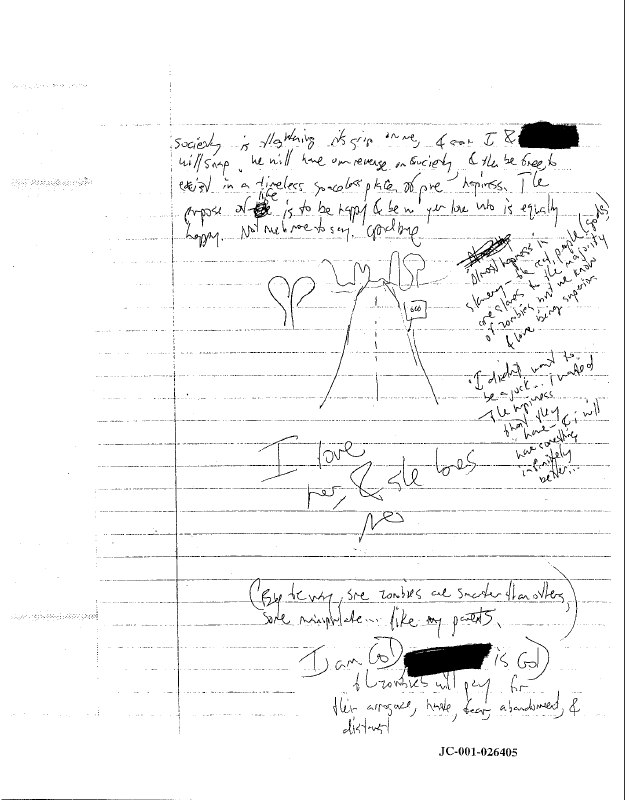 society is tightening its grip on me, & soon I &
will snap. we will have our revenge on society, & then be free to
exist in a timeless spaceless place of pure hapiness. The
purpose of life is to be happy & be w your love who is equally
happy. Not much more to say. goodbye
Almost hapiness in
slavery – the real people (gods)
are slaves to the majority
of zombies but we know
& love being superior
• I didnt want to
be a jock... i wanted
the hapiness
that they
have – & i will
have something
infinitely
better...
I love
her, & she loves
me
(By the way, some zombies are smarter than others,
some manipulate... like my parents.)
I am God, is God
the zombies will pay for
their arrogance, hate, fear, abandonment, &
distrust
JC-001-026405